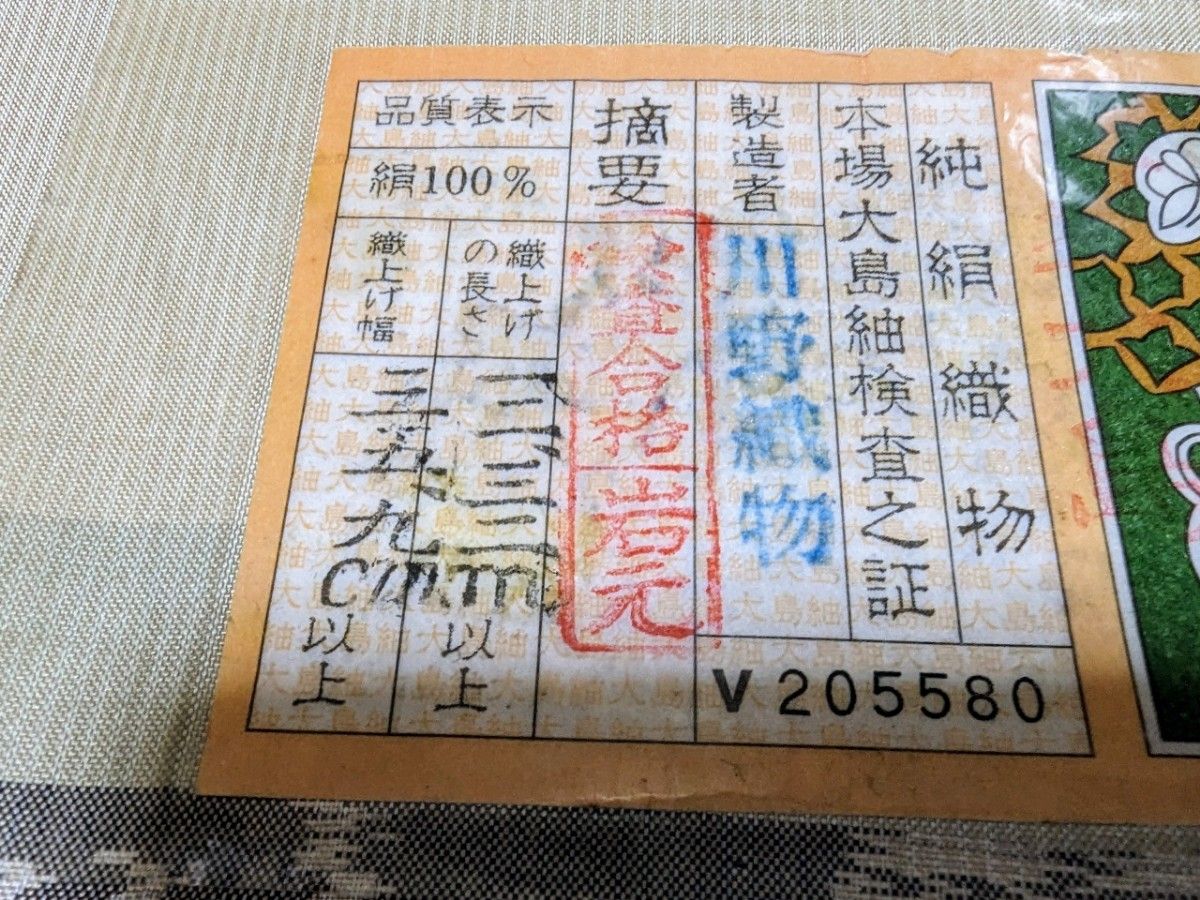 純絹織物
本場大島紬検査之証
製造者
川野織物
V205580
摘要
検査合格
岩元
品質表示
絹100%
織上げの長さ
一二、三三m以上
織上げ幅
三五、九cm以上